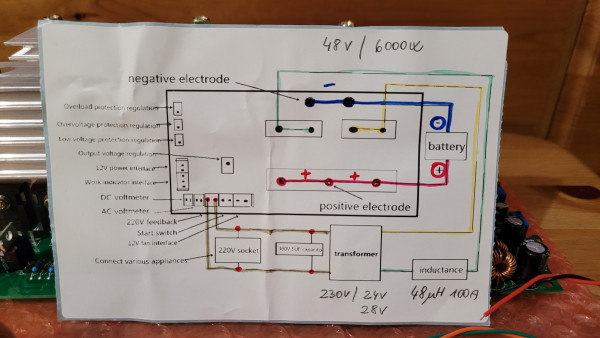 48V / 6000W
negative electrode
−
Overload protection regulation
Overvoltage protection regulation
Low voltage protection regulation
Output voltage regulation
12V power interface
Work indicator interface
DC voltmeter
AC voltmeter
220V feedback
Start switch
12V fan interface
Connect various appliances
−
battery
+
+ +
positive electrode
220V socket
transformer
inductance
230V / 24V
28V
48µH 100A